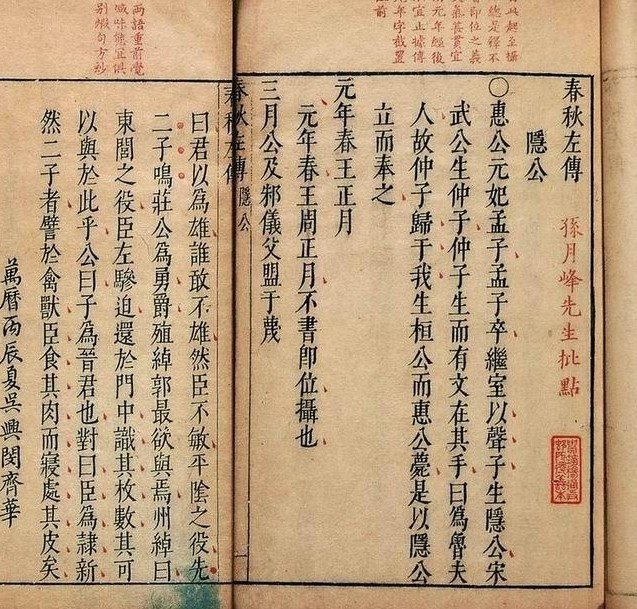 以起至攝
總是釋不
即位之義
義甚貫宜
元年經後
宜止據傳
年字截置
春秋左傳 孫月峰先生批點
隱公
○惠公元妃孟子孟子卒繼室以聲子生隱公宋
武公生仲子仲子生而有文在其手曰為魯夫
人故仲子歸于我生桓公而惠公薨是以隱公
立而奉之
元年春王正月
元年春王周正月不書即位攝也
三月公及邾儀父盟于蔑
春秋左傳 隱公
兩語重前覺
減味
句方妙
曰君以為雄誰敢不雄然臣不敏平陰之役先
二子鳴莊公為勇爵殖綽郭最欲與焉州綽曰
東閭之役臣左驂迫還於門中識其枚數其可
以與於此乎公曰子為晉君也對曰臣為隸新
然二子者譬於禽獸臣食其肉而寢處其皮矣
萬曆丙辰夏吳興閔齊華